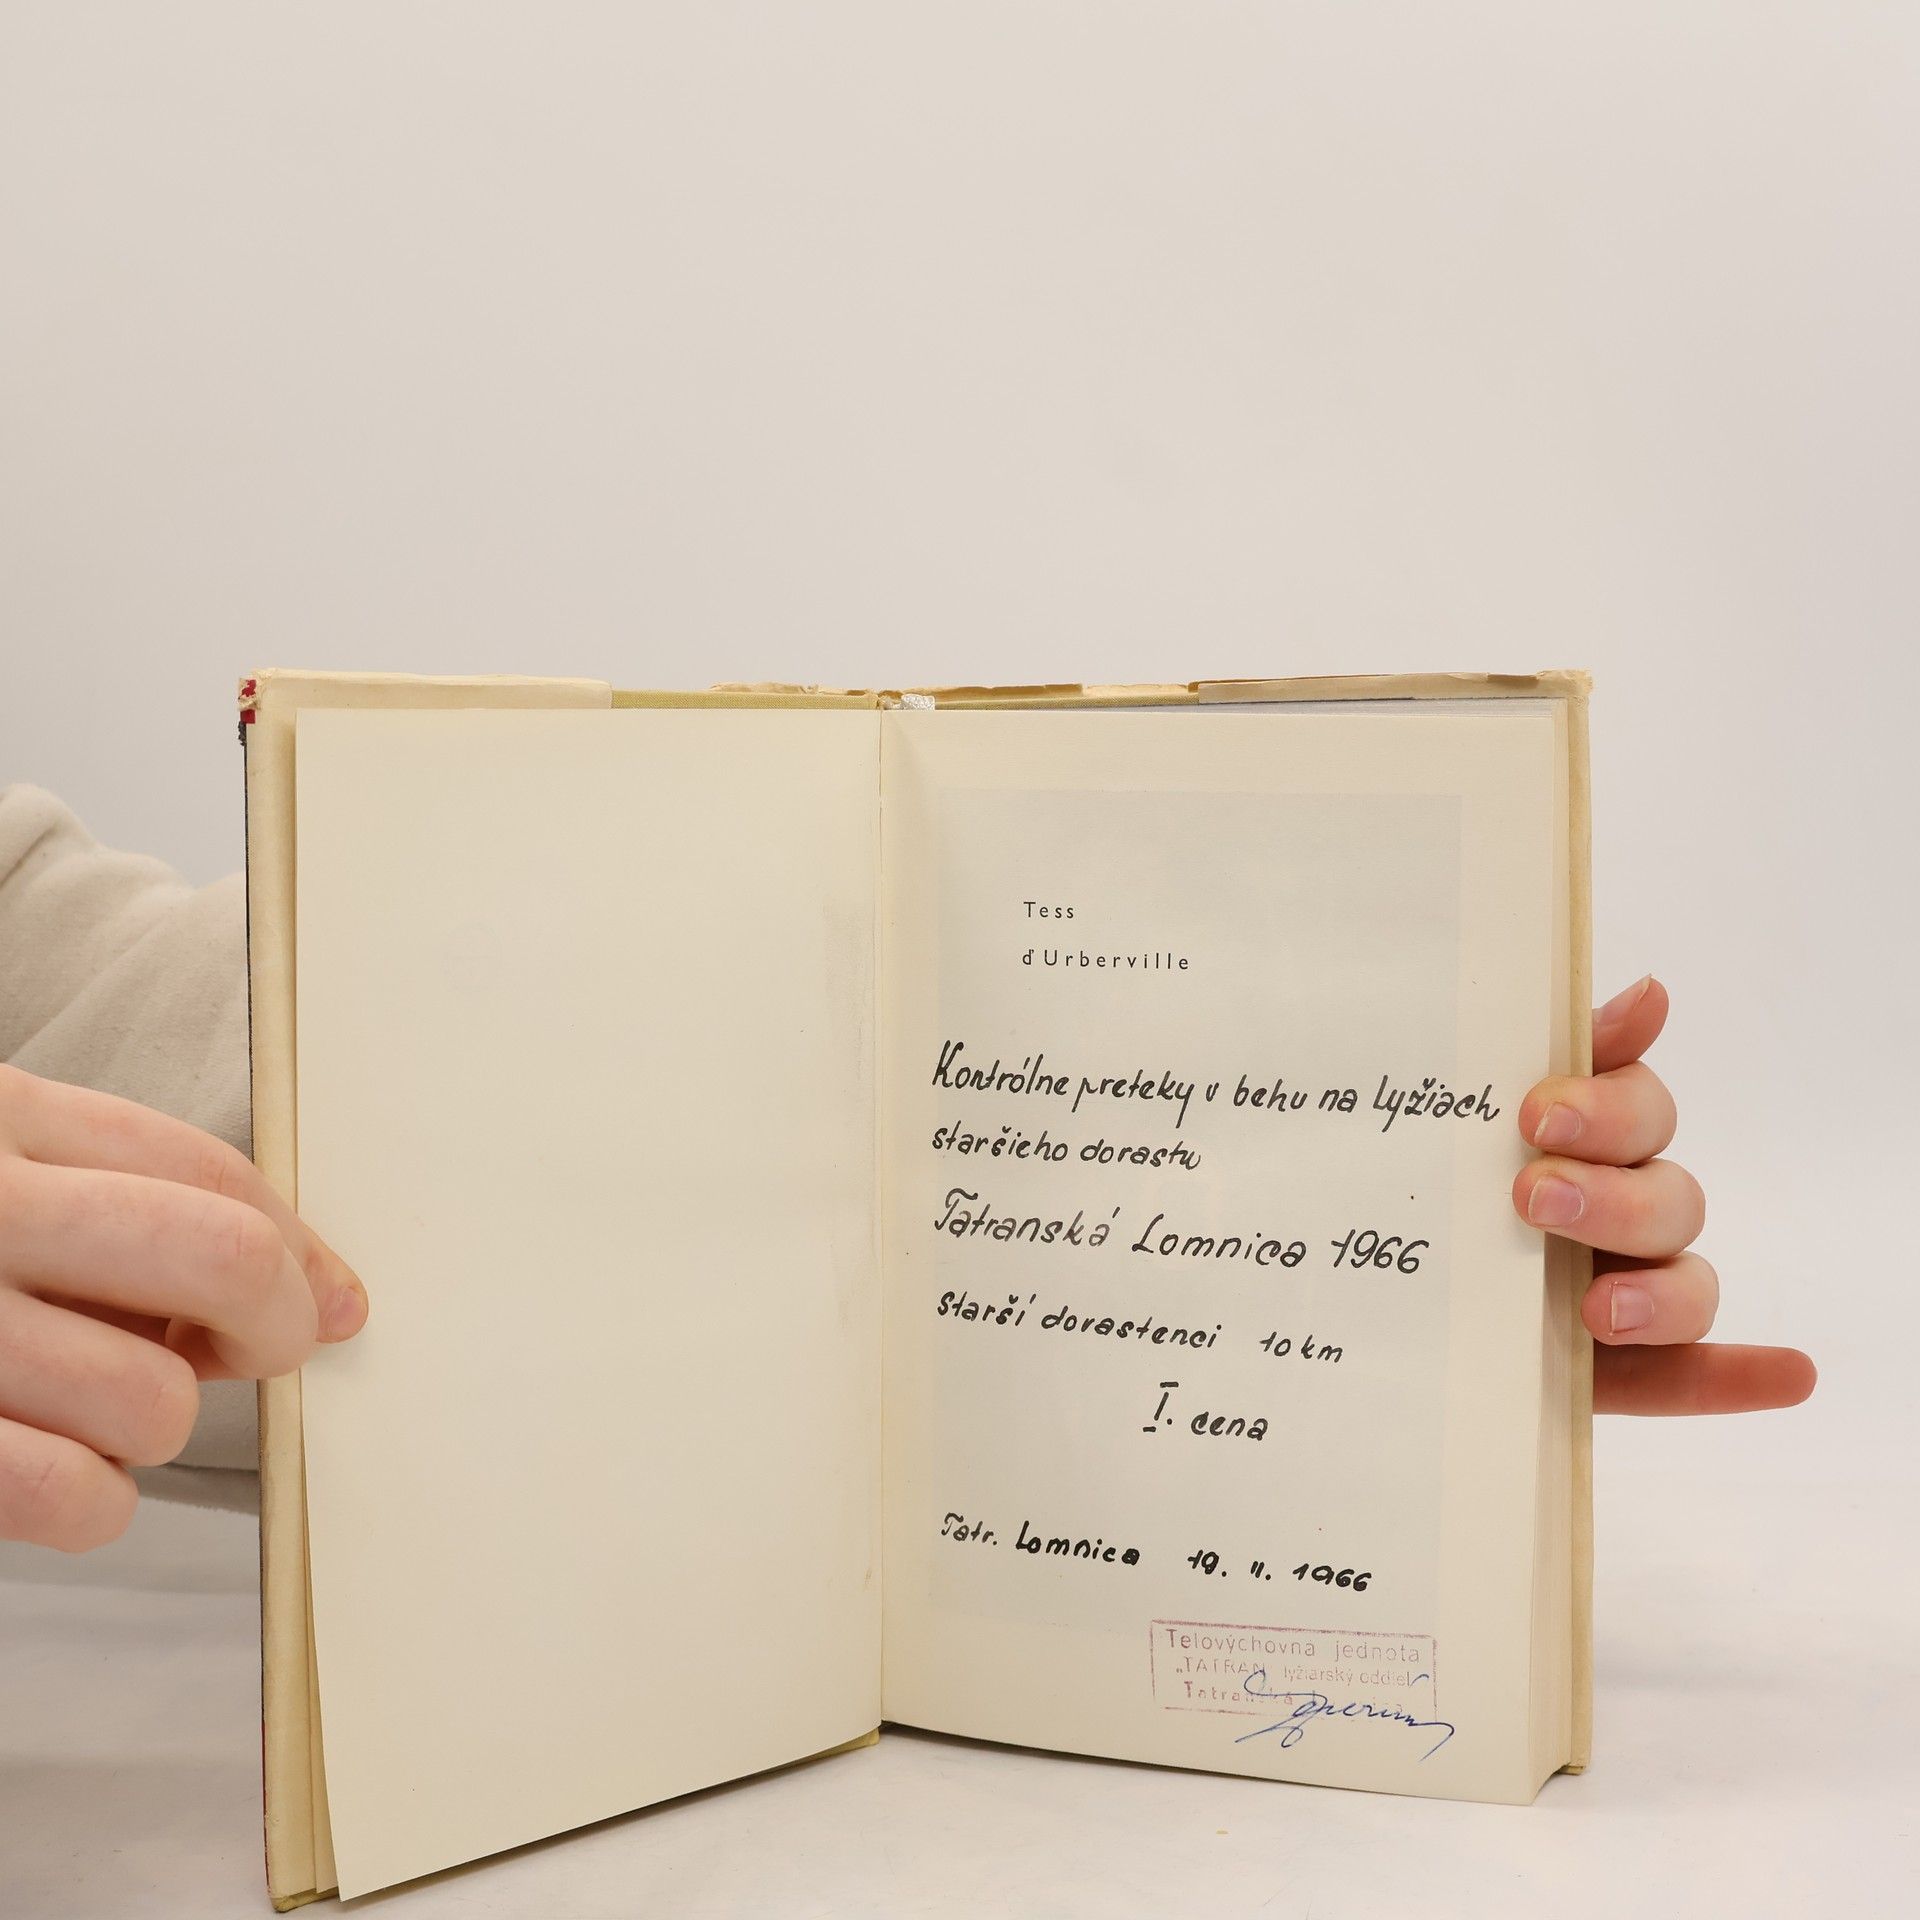 Tess
ďUrberville
Kontrólne preteky v behu na lyžiach
staršieho dorastu
Tatranská Lomnica 1966
starší dorastenci 10 km
I. cena
Tatr. Lomnica 19. II. 1966
Telovýchovna jednota
„TATRAN lyžiarský oddiel
Tatranská